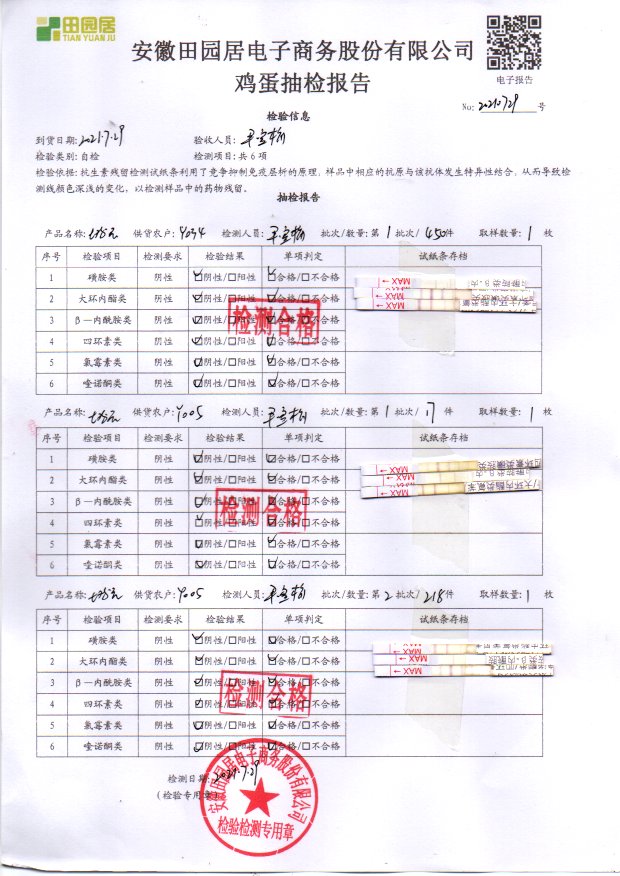 田园居
TIAN YUAN JU
安徽田园居电子商务股份有限公司
鸡蛋抽检报告
电子报告
No: 20210729 号
检验信息
到货日期: 2021.7.29 验收人员:
检验类别: 自检 检测项目: 共 6 项
检验依据: 抗生素残留检测试纸条利用了竞争抑制免疫层析的原理, 样品中相应的抗原与该抗体发生特异性结合, 从而导致检
测线颜色深浅的变化, 以检测样品中的药物残留。
抽检报告
产品名称: 供货农户: Y034 检测人员: 批次/数量: 第 1 批次/ 450 件 取样数量: 1 枚
序号 检验项目 检测要求 检验结果 单项判定 试纸条存档
1 磺胺类 阴性 ☑阴性/□阳性 ☑合格/□不合格
2 大环内酯类 阴性 ☑阴性/□阳性 ☑合格/□不合格
3 β—内酰胺类 阴性 ☑阴性/□阳性 ☑合格/□不合格
4 四环素类 阴性 ☑阴性/□阳性 ☑合格/□不合格
5 氯霉素类 阴性 ☑阴性/□阳性 ☑合格/□不合格
6 喹诺酮类 阴性 ☑阴性/□阳性 ☑合格/□不合格
检测合格
MAX
MAX
MAX
产品名称: 供货农户: Y005 检测人员: 批次/数量: 第 1 批次/ 17 件 取样数量: 1 枚
序号 检验项目 检测要求 检验结果 单项判定 试纸条存档
1 磺胺类 阴性 ☑阴性/□阳性 ☑合格/□不合格
2 大环内酯类 阴性 ☑阴性/□阳性 ☑合格/□不合格
3 β—内酰胺类 阴性 ☑阴性/□阳性 ☑合格/□不合格
4 四环素类 阴性 ☑阴性/□阳性 ☑合格/□不合格
5 氯霉素类 阴性 ☑阴性/□阳性 ☑合格/□不合格
6 喹诺酮类 阴性 ☑阴性/□阳性 ☑合格/□不合格
检测合格
MAX
MAX
MAX
产品名称: 供货农户: Y005 检测人员: 批次/数量: 第 2 批次/ 218 件 取样数量: 1 枚
序号 检验项目 检测要求 检验结果 单项判定 试纸条存档
1 磺胺类 阴性 ☑阴性/□阳性 ☑合格/□不合格
2 大环内酯类 阴性 ☑阴性/□阳性 ☑合格/□不合格
3 β—内酰胺类 阴性 ☑阴性/□阳性 ☑合格/□不合格
4 四环素类 阴性 ☑阴性/□阳性 ☑合格/□不合格
5 氯霉素类 阴性 ☑阴性/□阳性 ☑合格/□不合格
6 喹诺酮类 阴性 ☑阴性/□阳性 ☑合格/□不合格
检测合格
MAX
MAX
MAX
检测日期: 2021.7.29
(检验专用章)
安徽田园居电子商务股份有限公司
检验检测专用章